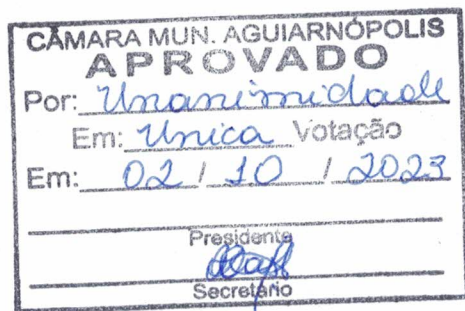 CÂMARA MUN. AGUIARNÓPOLIS
APROVADO
Por: Unanimidade
Em: Unica Votação
Em: 02 / 10 / 2023
Presidente
Secretário